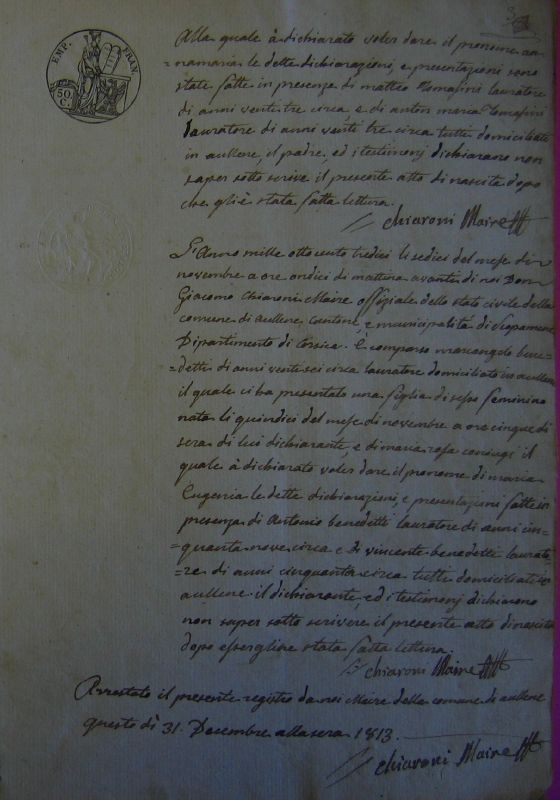 EMP. FRAN.
50 C.
Alla quale à dichiarato voler dare il pronome an=
=namaria le dette dichiarazioni, e presentazioni sono
state fatte in presenza di matteo Tomasini lauratore
di anni venti tre circa e di anton marca Tomasini
lauratore di anni venti tre circa tutti domiciliati
in aullene, il padre, ed i testimonj dichiarano non
saper sotto scrive il presente atto di nascita dopo
che gliè stata fatta lettura.
chiaroni Maire
L'Anno mille ottocento tredici li sedici del mese di
novembre a ore undici di mattina avanti di noi Don
Giacomo Chiaroni Maire offiziale dello stato civile della
comune di aullene Cantone, e municipalità di Scopamene
Dipartimento di Corsica. È comparso marcangelo bene
=detti di anni venti sei circa lauratore domiciliato in aullene
il quale ci ha presentato una figlia di sesso feminino
nata li quindici del mese di novembre a ore cinque di
sera di lui dichiarante, e di maria rosa coniugi il
quale à dichiarato voler dare il pronome di maria
Eugenia le dette dichiarazioni, e presentazioni fatte in
presenza di Antonio benedetti lauratore di anni cin=
=quanta nove circa e di vincente benedetti laurato
=re di anni cinquanta circa tutti domiciliati in
aullene il dichiarante, ed i testimonj dichiarono
non saper sotto scrivere il presente atto di nascita
dopo essergline stata fatta lettura.
chiaroni Maire
Arrestato il presente registro da noi Maire della comune di aullene
questo dì 31. Decembre alla sera 1813.
chiaroni Maire